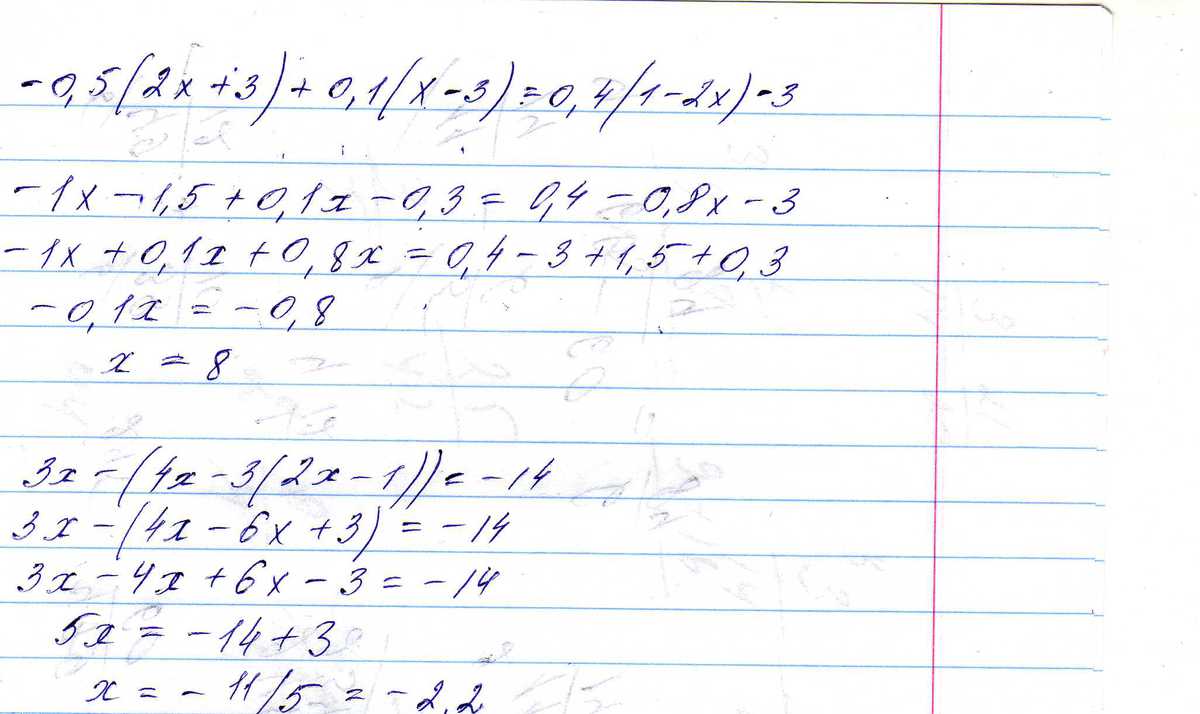 -0,5(2x+3)+0,1(x-3)=0,4(1-2x)-3
-1x-1,5+0,1x-0,3=0,4-0,8x-3
-1x+0,1x+0,8x=0,4-3+1,5+0,3
-0,1x=-0,8
x=8
3x-(4x-3(2x-1))=-14
3x-(4x-6x+3)=-14
3x-4x+6x-3=-14
5x=-14+3
x=-11/5=-2,2